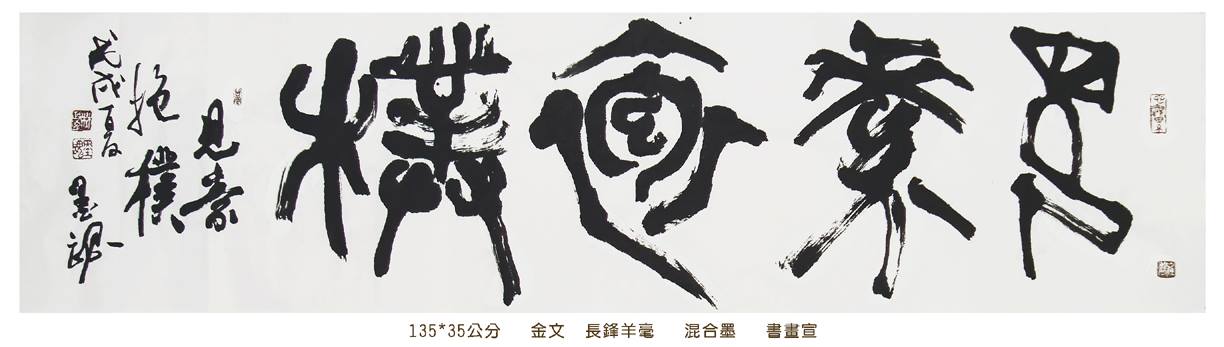 見素抱樸
見素
抱樸
戊戌
墨
135*35公分 金文 長鋒羊毫 混合墨 書畫宣